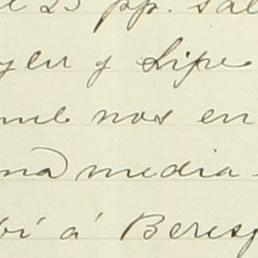 e 25 pp. sal
y en y Lipe
me nos en
na media
bí á Beres